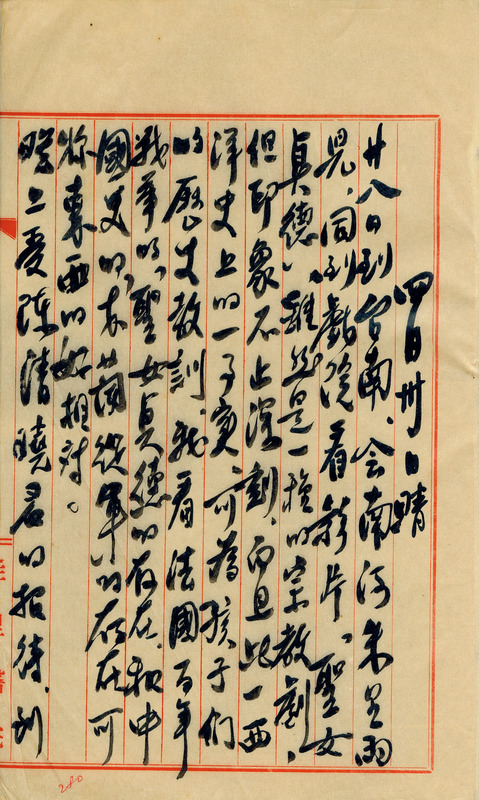 四月卅日 晴
廿八日到台南、会南河朱里雨
晃、同到戲院看影片、聖女
貞德、雖然是一種的宗教劇、
但印象不止深刻、而且此一西
洋史上的一事實、可為孩子们
的歷史教訓、我看法國百年
战爭的、聖女貞德的存在、和中
國史的、木蘭從軍的存在可
称東西的好相对。
晚上受陳清曉君的招待、到
280